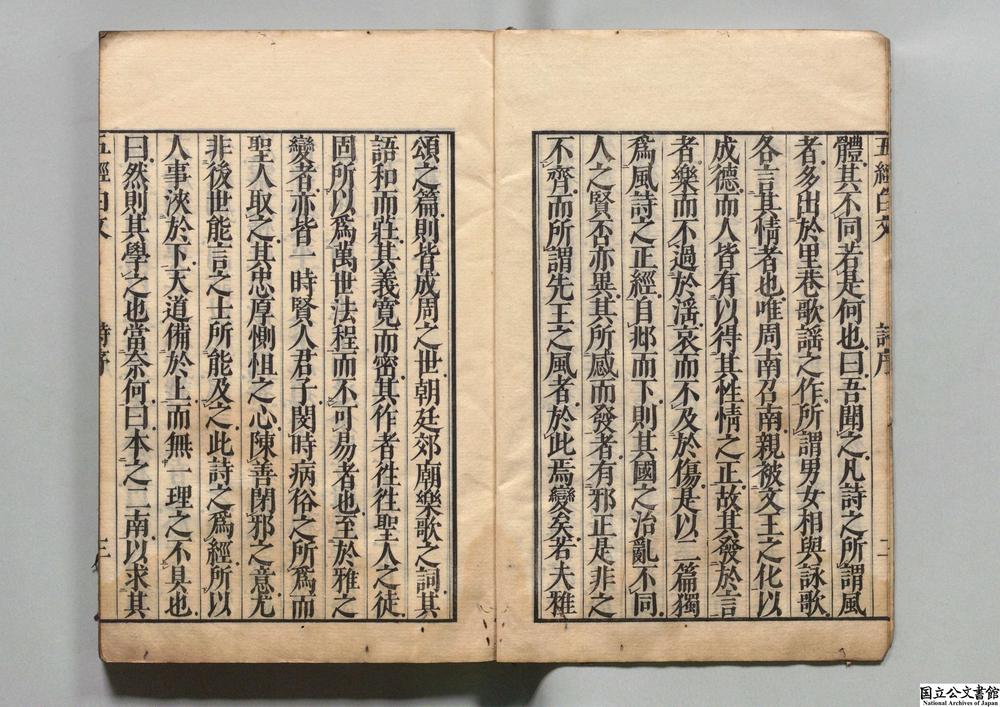 五經白文 詩序 二
體其不同若是何也曰吾聞之凡詩之所謂風
者多出於里巷歌謠之作所謂男女相與詠歌
各言其情者也唯周南召南親被文王之化以
成德而人皆有以得其性情之正故其發於言
者樂而不過於淫哀而不及於傷是以二篇獨
爲風詩之正經自邶而下則其國之治亂不同
人之賢否亦異其所感而發者有邪正是非之
不齊而所謂先王之風者於此焉變矣若夫雅
頌之篇則皆成周之世朝廷郊廟樂歌之詞其
語和而莊其義寬而密其作者徃徃聖人之徒
固所以爲萬世法程而不可易者也至於雅之
變者亦皆一時賢人君子閔時病俗之所爲而
聖人取之其忠厚惻怛之心陳善閉邪之意尤
非後世能言之士所能及之此詩之爲經所以
人事浹於下天道備於上而無一理之不具也
曰然則其學之也當奈何曰本之二南以求其
五經白文 詩序 三
国立公文書館
National Archives of Japan